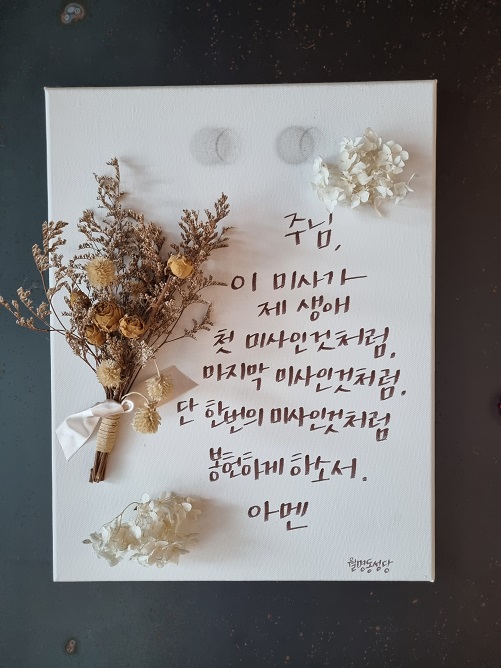 주님,
이 미사가
제 생애
첫 미사인것처럼,
마지막 미사인것처럼.
단 한번의 미사인것처럼
봉헌하게 하소서.
아멘
월명동성당